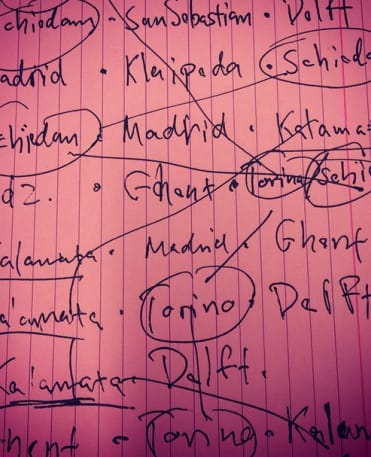 chiedam · San Sobastian · Delft
adrid · Klaipeda · Schieda
chiedam · Madrid · Katama
dz. · Ghent · Torino Schi
alamata · Madrid · Ghent
alamata · Torino · Delft
Kalamata Delft.
hent · Torino · Kalam